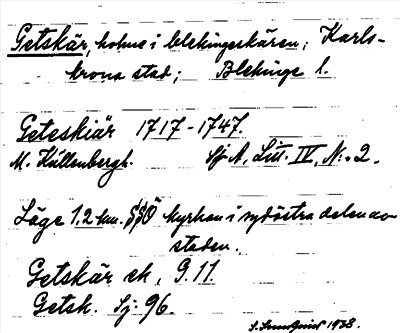 Getskär, holme i blekingeskären; Karls-
krona stad; Blekinge l.
Geteskiär 1717-1747.
M. Kullenbergh. Sj A, Litt. IV, N:o 2.
Läge 1.2 km. SSO kyrkan i sydöstra delen av
staden.
Getskär ek. G. 11.
Getsk. Sj. 96.
1938.